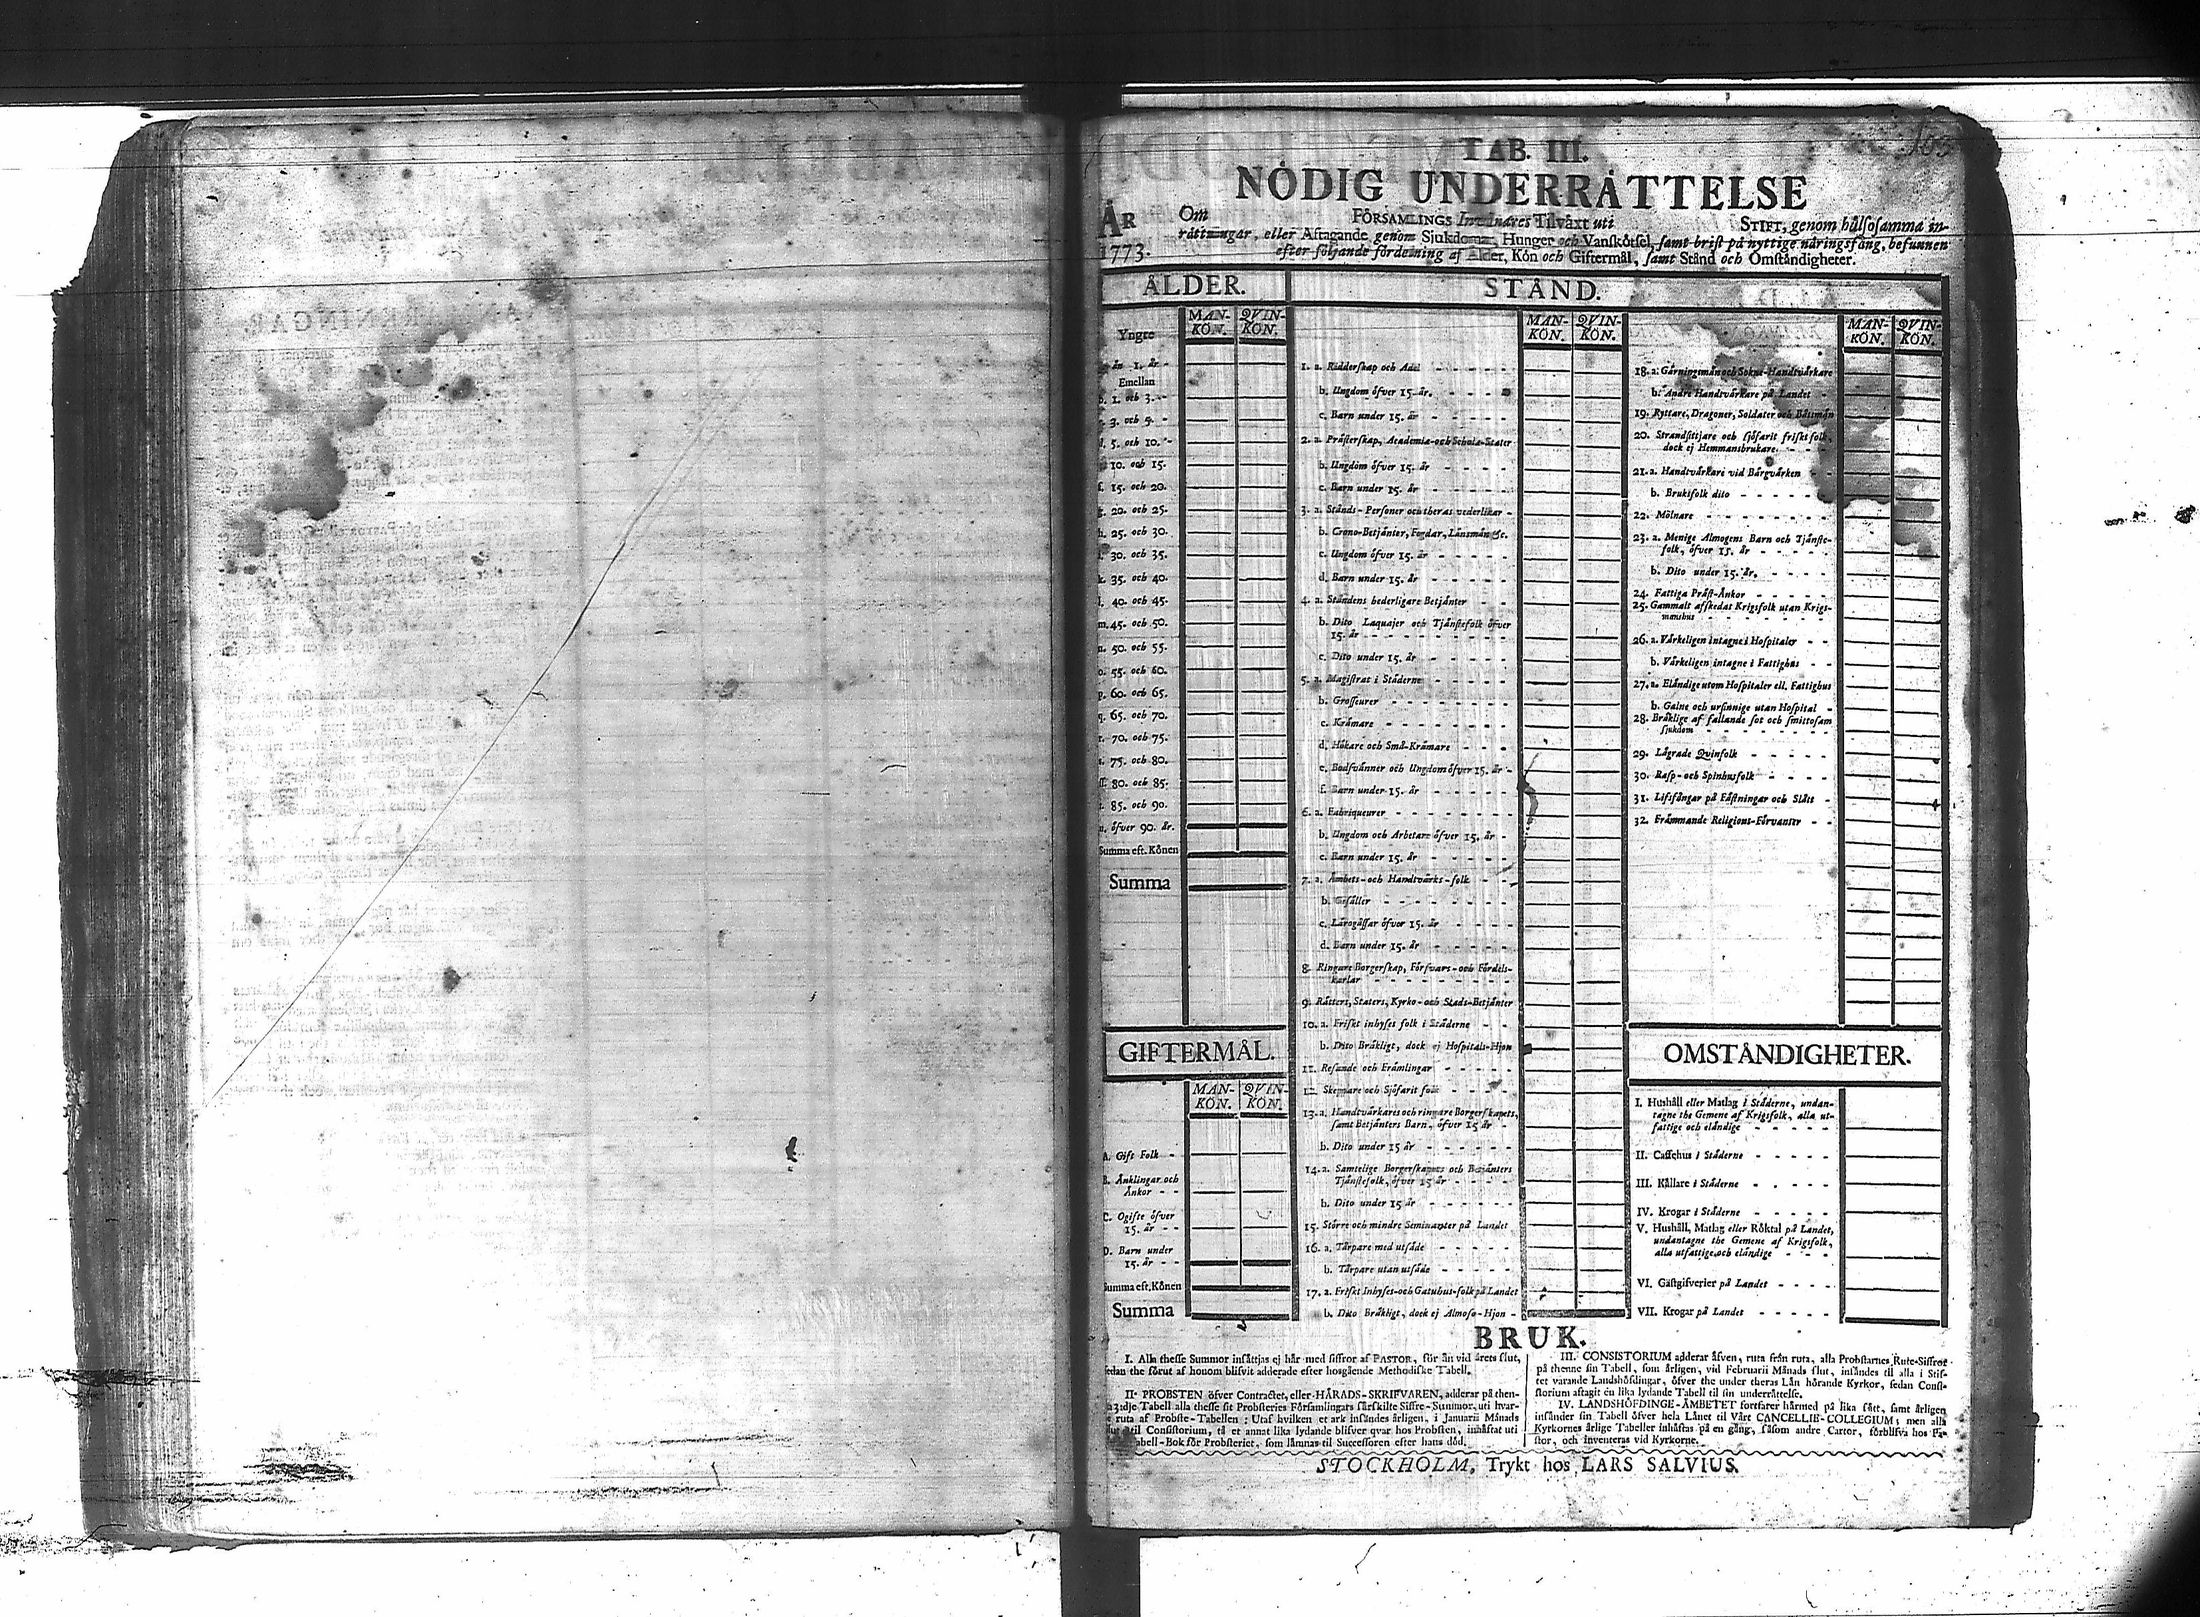 163
TAB. III.
NÖDIG UNDERRÄTTELSE
ÅR
1773.
Om FÖRSAMLINGS Innevånares Tilväxt uti STIFT, genom hälsosamma in-
rättningar, eller Aftagande genom Sjukdomar, Hunger och Vanskötsel, samt brist på nyttige näringsfång, befunnen
efter följande fördelning af Ålder, Kön och Giftermål, samt Stånd och Omständigheter.
ÅLDER.
MAN-KÖN. QVIN-KÖN.
Yngre
än 1. år -
Emellan
b. 1. och 3. -
3. och 5. -
d. 5. och 10. -
10. och 15.
f. 15. och 20.
g. 20. och 25.
h. 25. och 30.
30. och 35.
k. 35. och 40.
l. 40. och 45.
m. 45. och 50.
n. 50. och 55.
o. 55. och 60.
p. 60. och 65.
q. 65. och 70.
r. 70. och 75.
s. 75. och 80.
ss. 80. och 85.
t. 85. och 90.
u. öfver 90. år.
Summa eft. Könen
Summa
GIFTERMÅL.
MAN-KÖN. QVIN-KÖN.
A. Gift Folk -
B. Änklingar och
Änkor - -
C. Ogifte öfver
15. år - -
D. Barn under
15. år - -
Summa eft. Könen
Summa
STÅND.
MAN-KÖN. QVIN-KÖN.
1. a. Ridderskap och Adel
b. Ungdom öfver 15. år.
c. Barn under 15. år
2. a. Prästerskap, Academiæ-och Schola-Stater
b. Ungdom öfver 15. år
c. Barn under 15. år
3. a. Stånds-Personer och theras vederlikar -
b. Crono-Betjänter, Fogdar, Länsmän &c.
c. Ungdom öfver 15. år
d. Barn under 15. år
4. a. Ståndens hederligare Betjänter
b. Dito Laquajer och Tjänstefolk öfver
15. år
c. Dito under 15. år
5. a. Magistrat i Städerne
b. Grosseurer
c. Krämare
d. Hökare och Små-Krämare
e. Bodsvänner och Ungdom öfver 15. år -
f. Barn under 15. år
6. a. Fabriqueurer
b. Ungdom och Arbetare öfver 15. år -
c. Barn under 15. år
7. a. Ämbets-och Handtvärks-folk
b. Gesäller
c. Lärogåssar öfver 15. år
d. Barn under 15. år
8. Ringare Borgerskap, Försvars-och Fördels-
karlar
9. Rätters, Staters, Kyrko-och Stads-Betjänter
10. a. Friskt inhyses folk i Städerne
b. Dito Bräkligt, dock ej Hospitals-Hjon
11. Resande och Främlingar
12. Skeppare och Sjöfarit folk
13. a. Handtvärkares och ringare Borgerskapets,
samt Betjänters Barn, öfver 15 år -
b. Dito under 15 år
14. a. Samtelige Borgerskapets och Betjänters
Tjänstefolk, öfver 15 år
b. Dito under 15 år
15. Större och mindre Seminanter på Landet
16. a. Tårpare med utsäde
b. Tårpare utan utsäde
17. a. Friskt Inhyses-och Gatuhus-folk på Landet
b. Dito Bräkligt, dock ej Almoso-Hjon -
MAN-KÖN. QVIN-KÖN.
18. a. Gärningsmän och Sokne-Handtvärkare
b. Andre Handtvärkare på Landet -
19. Ryttare, Dragoner, Soldater och Båtsmän
20. Strandsittjare och sjöfarit friskt folk,
dock ej Hemmansbrukare.
21. a. Handtvärkare vid Bärgvärken
b. Bruksfolk dito
22. Mölnare
23. a. Menige Almogens Barn och Tjänste-
folk, öfver 15. år
b. Dito under 15. år.
24. Fattiga Präst-Änkor
25. Gammalt afskedat Krigsfolk utan Krigs-
manshus
26. a. Värkeligen intagne i Hospitaler
b. Värkeligen intagne i Fattighus
27. a. Eländige utom Hospitaler ell. Fattighus
b. Galne och ursinnige utan Hospital -
28. Bräklige af fallande sot och smittosam
sjukdom
29. Lägrade Qvinfolk
30. Rasp-och Spinhusfolk
31. Lifsfångar på Fästningar och Slått -
32. Främmande Religions-Förvanter
OMSTÄNDIGHETER.
I. Hushåll eller Matlag i Städerne, undan-
tagne the Gemene af Krigsfolk, alla ut-
fattige och eländige
II. Caffehus i Städerne
III. Källare i Städerne
IV. Krogar i Städerne
V. Hushåll, Matlag eller Röktal på Landet,
undantagne the Gemene af Krigsfolk,
alla utfattige och eländige
VI. Gästgifverier på Landet
VII. Krogar på Landet
BRUK.
I. Alla thesse Summor insättjas ej här med siffror af PASTOR, för än vid årets slut,
sedan the förut af honom blifvit adderade efter hosgående Methodiske Tabell.
II. PROBSTEN öfver Contractet, eller HÄRADS-SKRIFVAREN, adderar på then-
na 3:dje Tabell alla thesse sit Probsteries Församlingars särskilte Siffre-Summor, uti hvar-
je ruta af Probste-Tabellen: Utaf hvilken et ark insändes årligen, i Januarii Månads
slut til Consistorium, tå et annat lika lydande blifver qvar hos Probsten, inhäftat uti
Tabell-Bok för Probsteriet, som lämnas til Successoren efter hans död.
III. CONSISTORIUM adderar äfven, ruta från ruta, alla Probstarnes Rute-Siffror
på thenne sin Tabell, som årligen, vid Februarii Månads slut, insändes til alla i Stif-
tet varande Landshöfdingar, öfver the under theras Län hörande Kyrkor, sedan Consi-
storium aftagit en lika lydande Tabell til sin underrättelse.
IV. LANDSHÖFDINGE-ÄMBETET fortfarer härmed på lika sätt, samt årligen
insänder sin Tabell öfver hela Länet til Vårt CANCELLIE-COLLEGIUM; men alla
Kyrkornes årlige Tabeller inhäftas på en gång, såsom andre Cartor, förblifva hos Pa-
stor, och inventeras vid Kyrkorne.
STOCKHOLM, Trykt hos LARS SALVIUS.